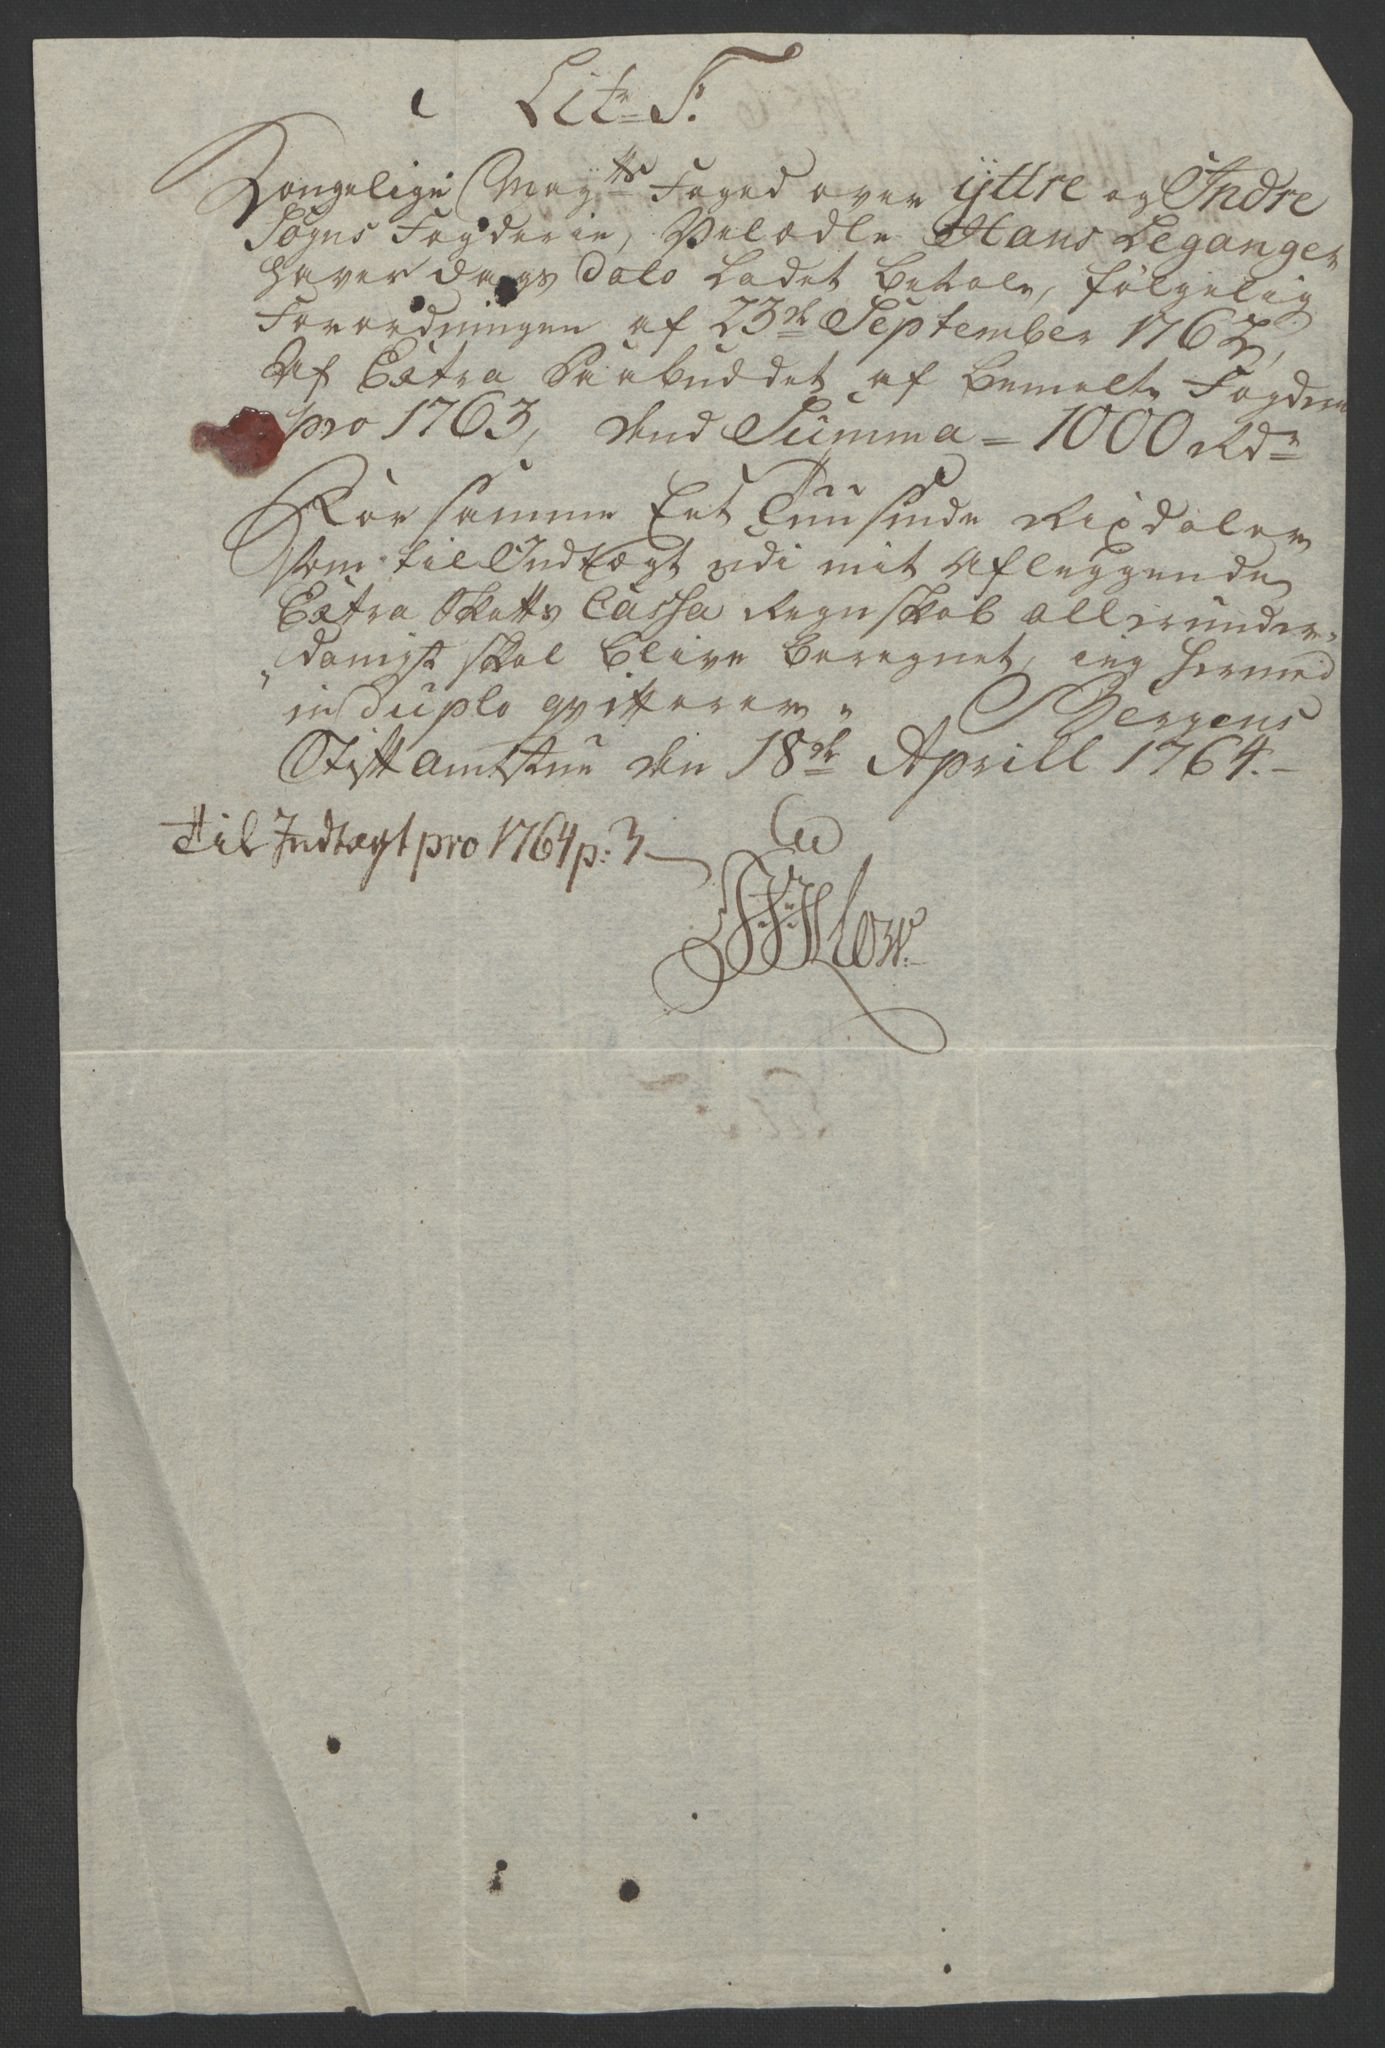 Litr S.
Kongelige Mayts Foged over ÿttre og Indre
Sogns Fogderie, Velædle Hans Leganger
haver dags dato ladet betale, følgelig
Forordningen af 23de September 1762,
Af Extra Paabuddet af bemelte Fogderie
pro 1763, dend Summa = 1000 Rdr
For samme Eet Tuusinde Rixdaler
som til Indtægt udi mit aflæggende
Extra Skatts Cassa Regnskab allerunder„
„danigst skal blive beregnet, ieg hermed
in duplo qvitterer. Bergens
Stiftamtstue den 18de Aprill 1764.
til Indtægt pro 1764 p: 3